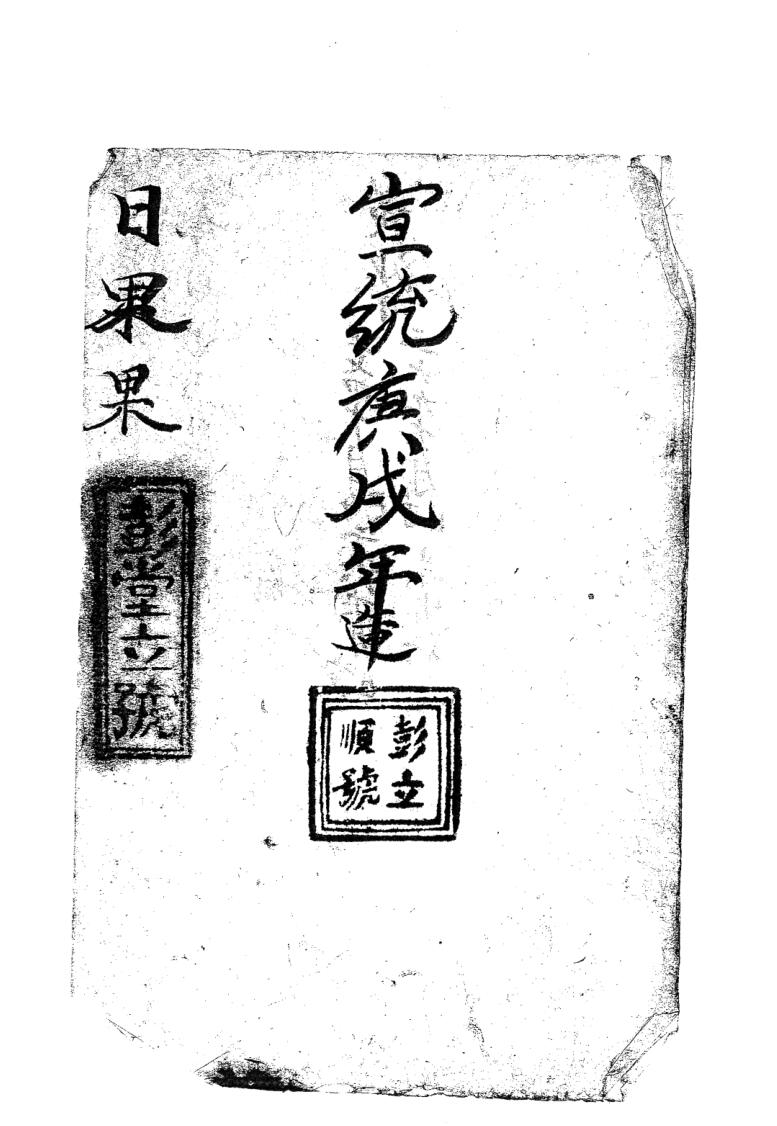 宣統庚戌年造
彭立
順號
日果
彭堂立號